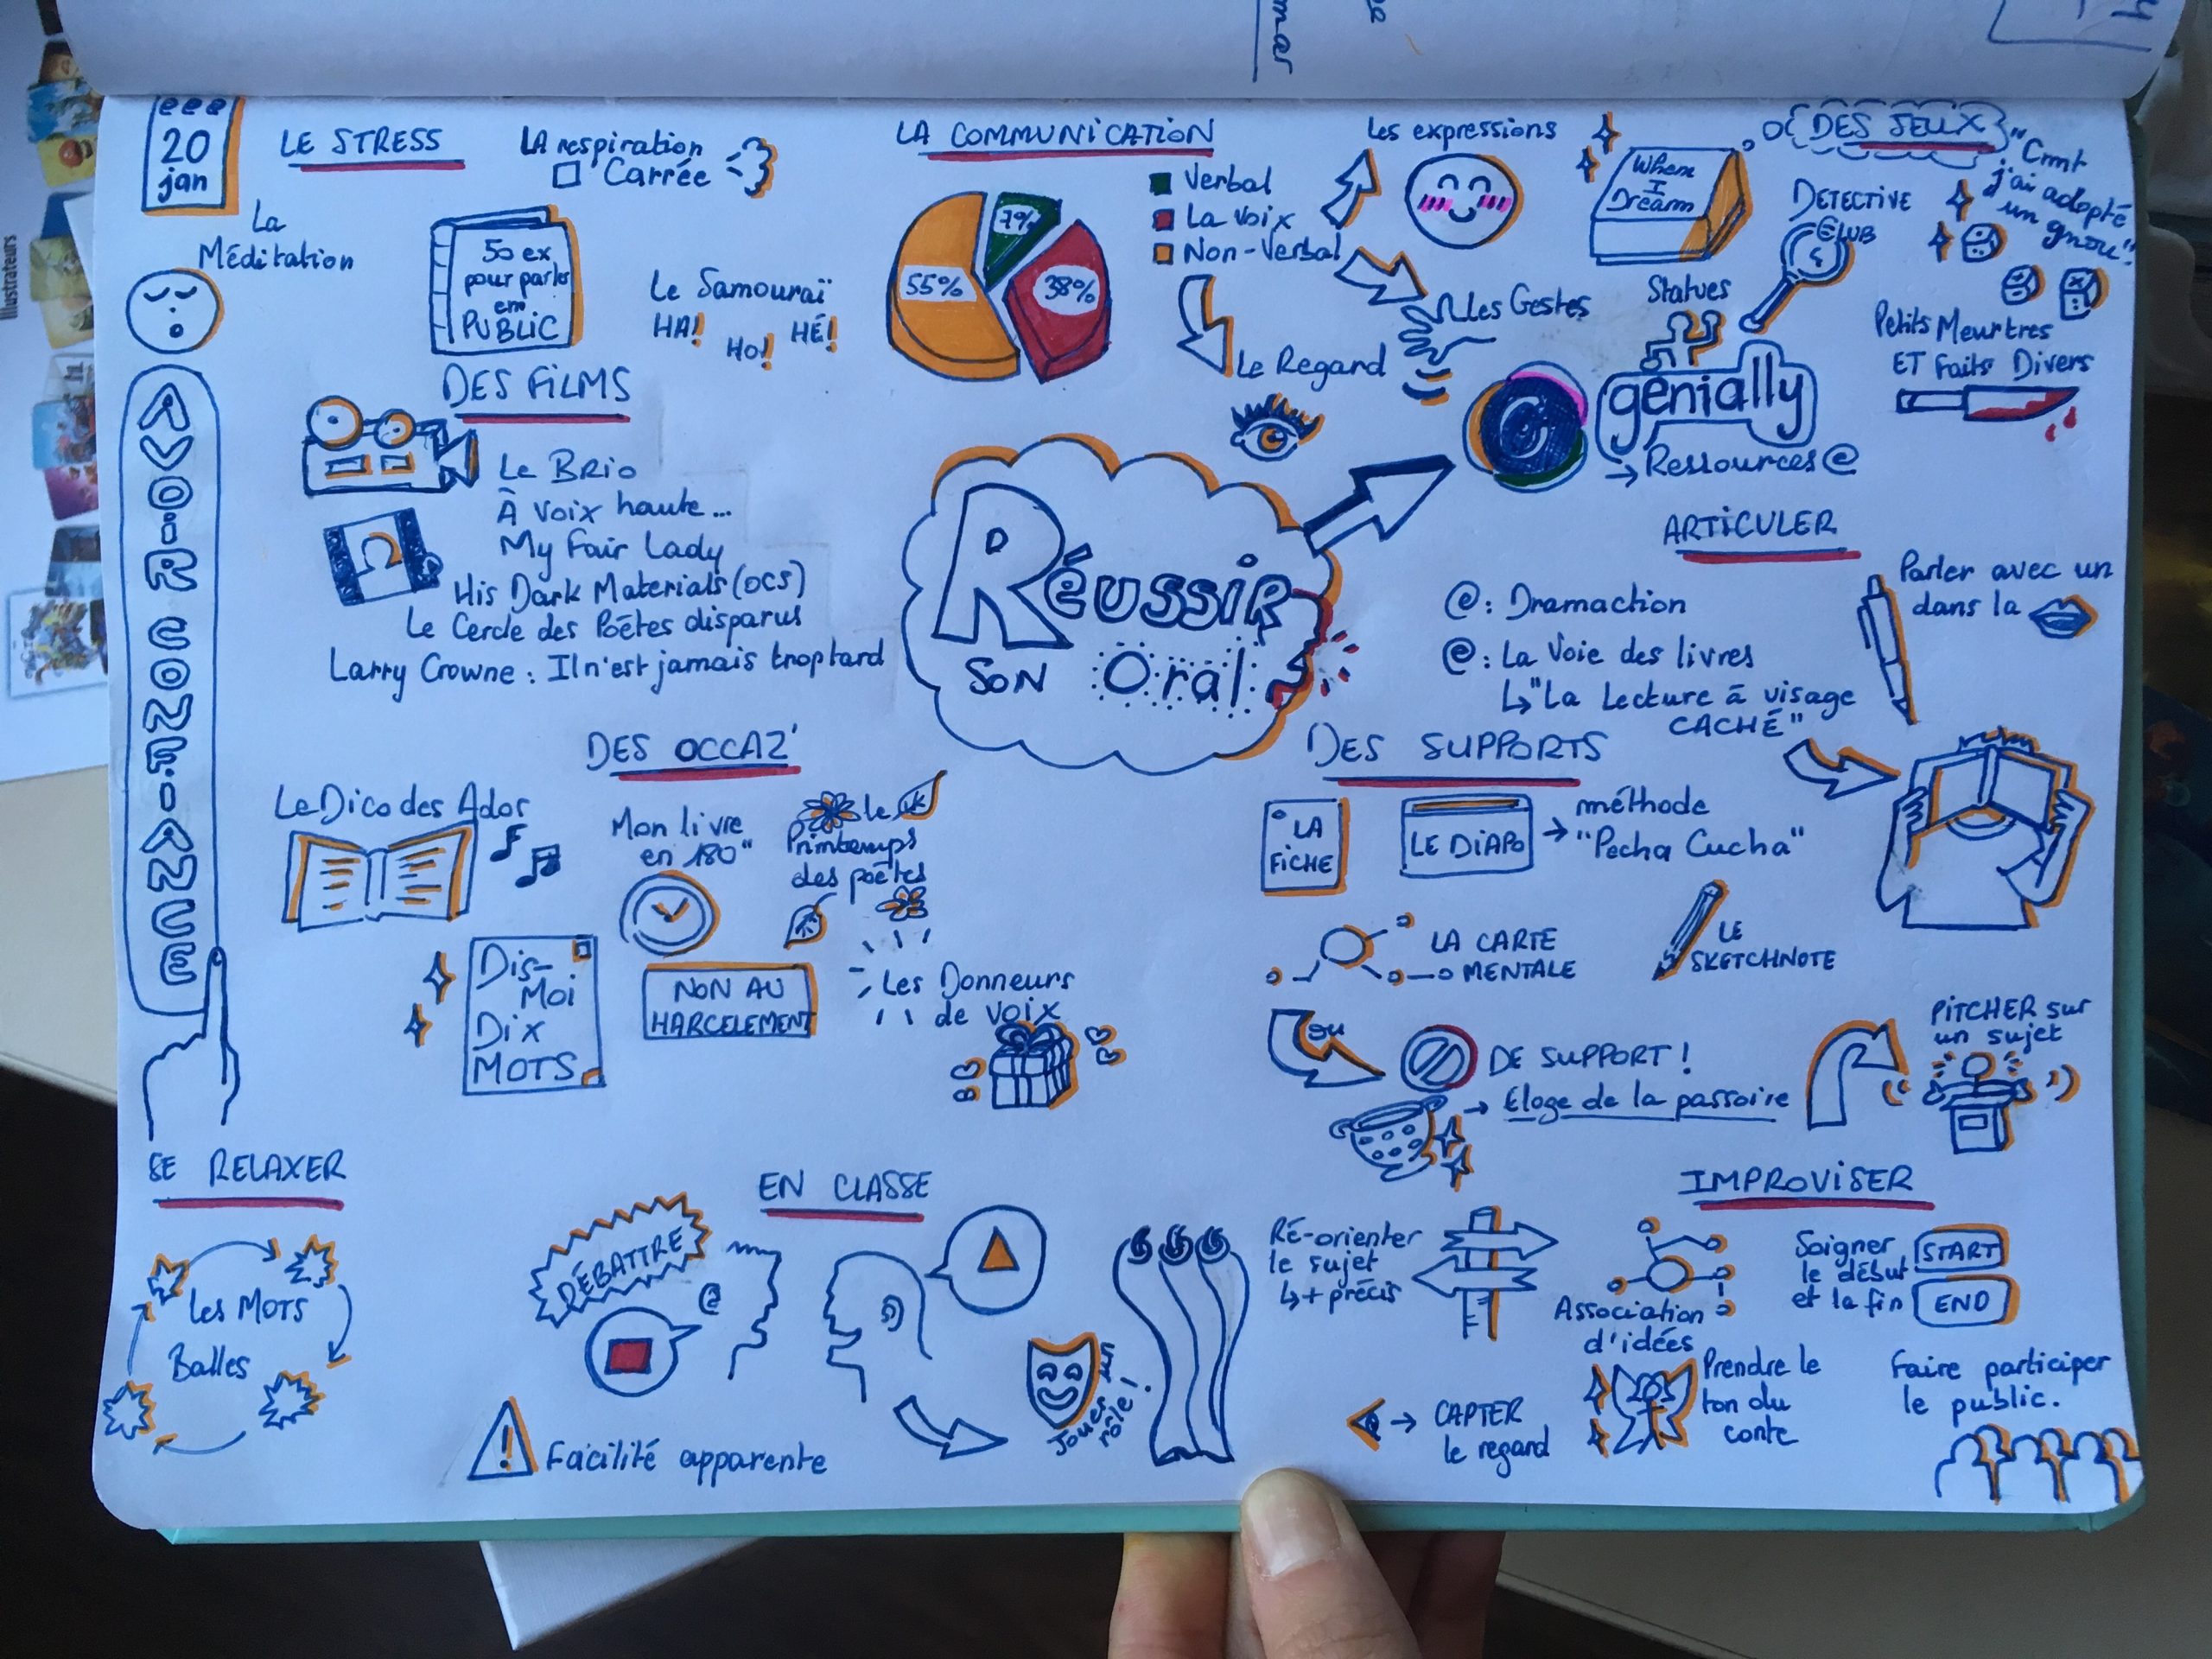 20
jan
LE STRESS
LA respiration
Carrée
La
Méditation
50 ex
pour parler
en
PUBLIC
Le Samouraï
HA!
Ho!
HÉ!
AVOIR CONFIANCE
DES FiLMS
Le Brio
À voix haute...
My Fair Lady
His Dark Materials (OCS)
Le Cercle des Poëtes disparus
Larry Crowne : Il n'est jamais trop tard
LA COMMUNICATION
7%
55%
38%
Verbal
La voix
Non-Verbal
Les expressions
Les Gestes
Le Regard
DES JEUX
When
I
Dream
DETECTIVE
CLUB
"Cmt
j'ai adopté
un gnou"!
Statues
Petits Meurtres
ET Faits Divers
genially
→ Ressources @
Réussir
SON Oral
ARTICULER
@: Dramaction
@: La Voie des livres
↳"La Lecture à visage
CACHÉ"
Parler avec un
dans la
DES OCCAZ'
Le Dico des Ados
Mon livre
en 180"
le
Printemps
des poëtes
Dis-
Moi
Dix
MOTS
NON AU
HARCELEMENT
Les Donneurs
de voix
DES SUPPORTS
LA
FICHE
LE DiAPO
→ méthode
"Pecha Cucha"
LA CARTE
MENTALE
LE
SKETCHNOTE
ou
DE SUPPORT !
→ Eloge de la passoire
PiTCHER sur
un sujet
SE RELAXER
Les MOTS
Balles
EN CLASSE
DÉBATTRE
Jouer un
rôle!
Facilité apparente
IMPROViSER
Ré-orienter
le sujet
↳ + précis
Association
d'idées
Soigner
le début
et la fin
START
END
→ CAPTER
le regard
Prendre le
ton du
conte
Faire participer
le public.
Illustrateurs